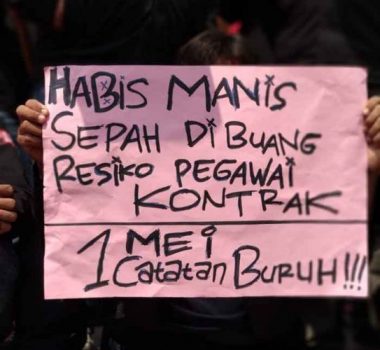 HABIS MANIS
SEPAH DI BUANG
RESiKO PEGAWAI
KONTRAK
1 MEi
Catatan BURUH!!!